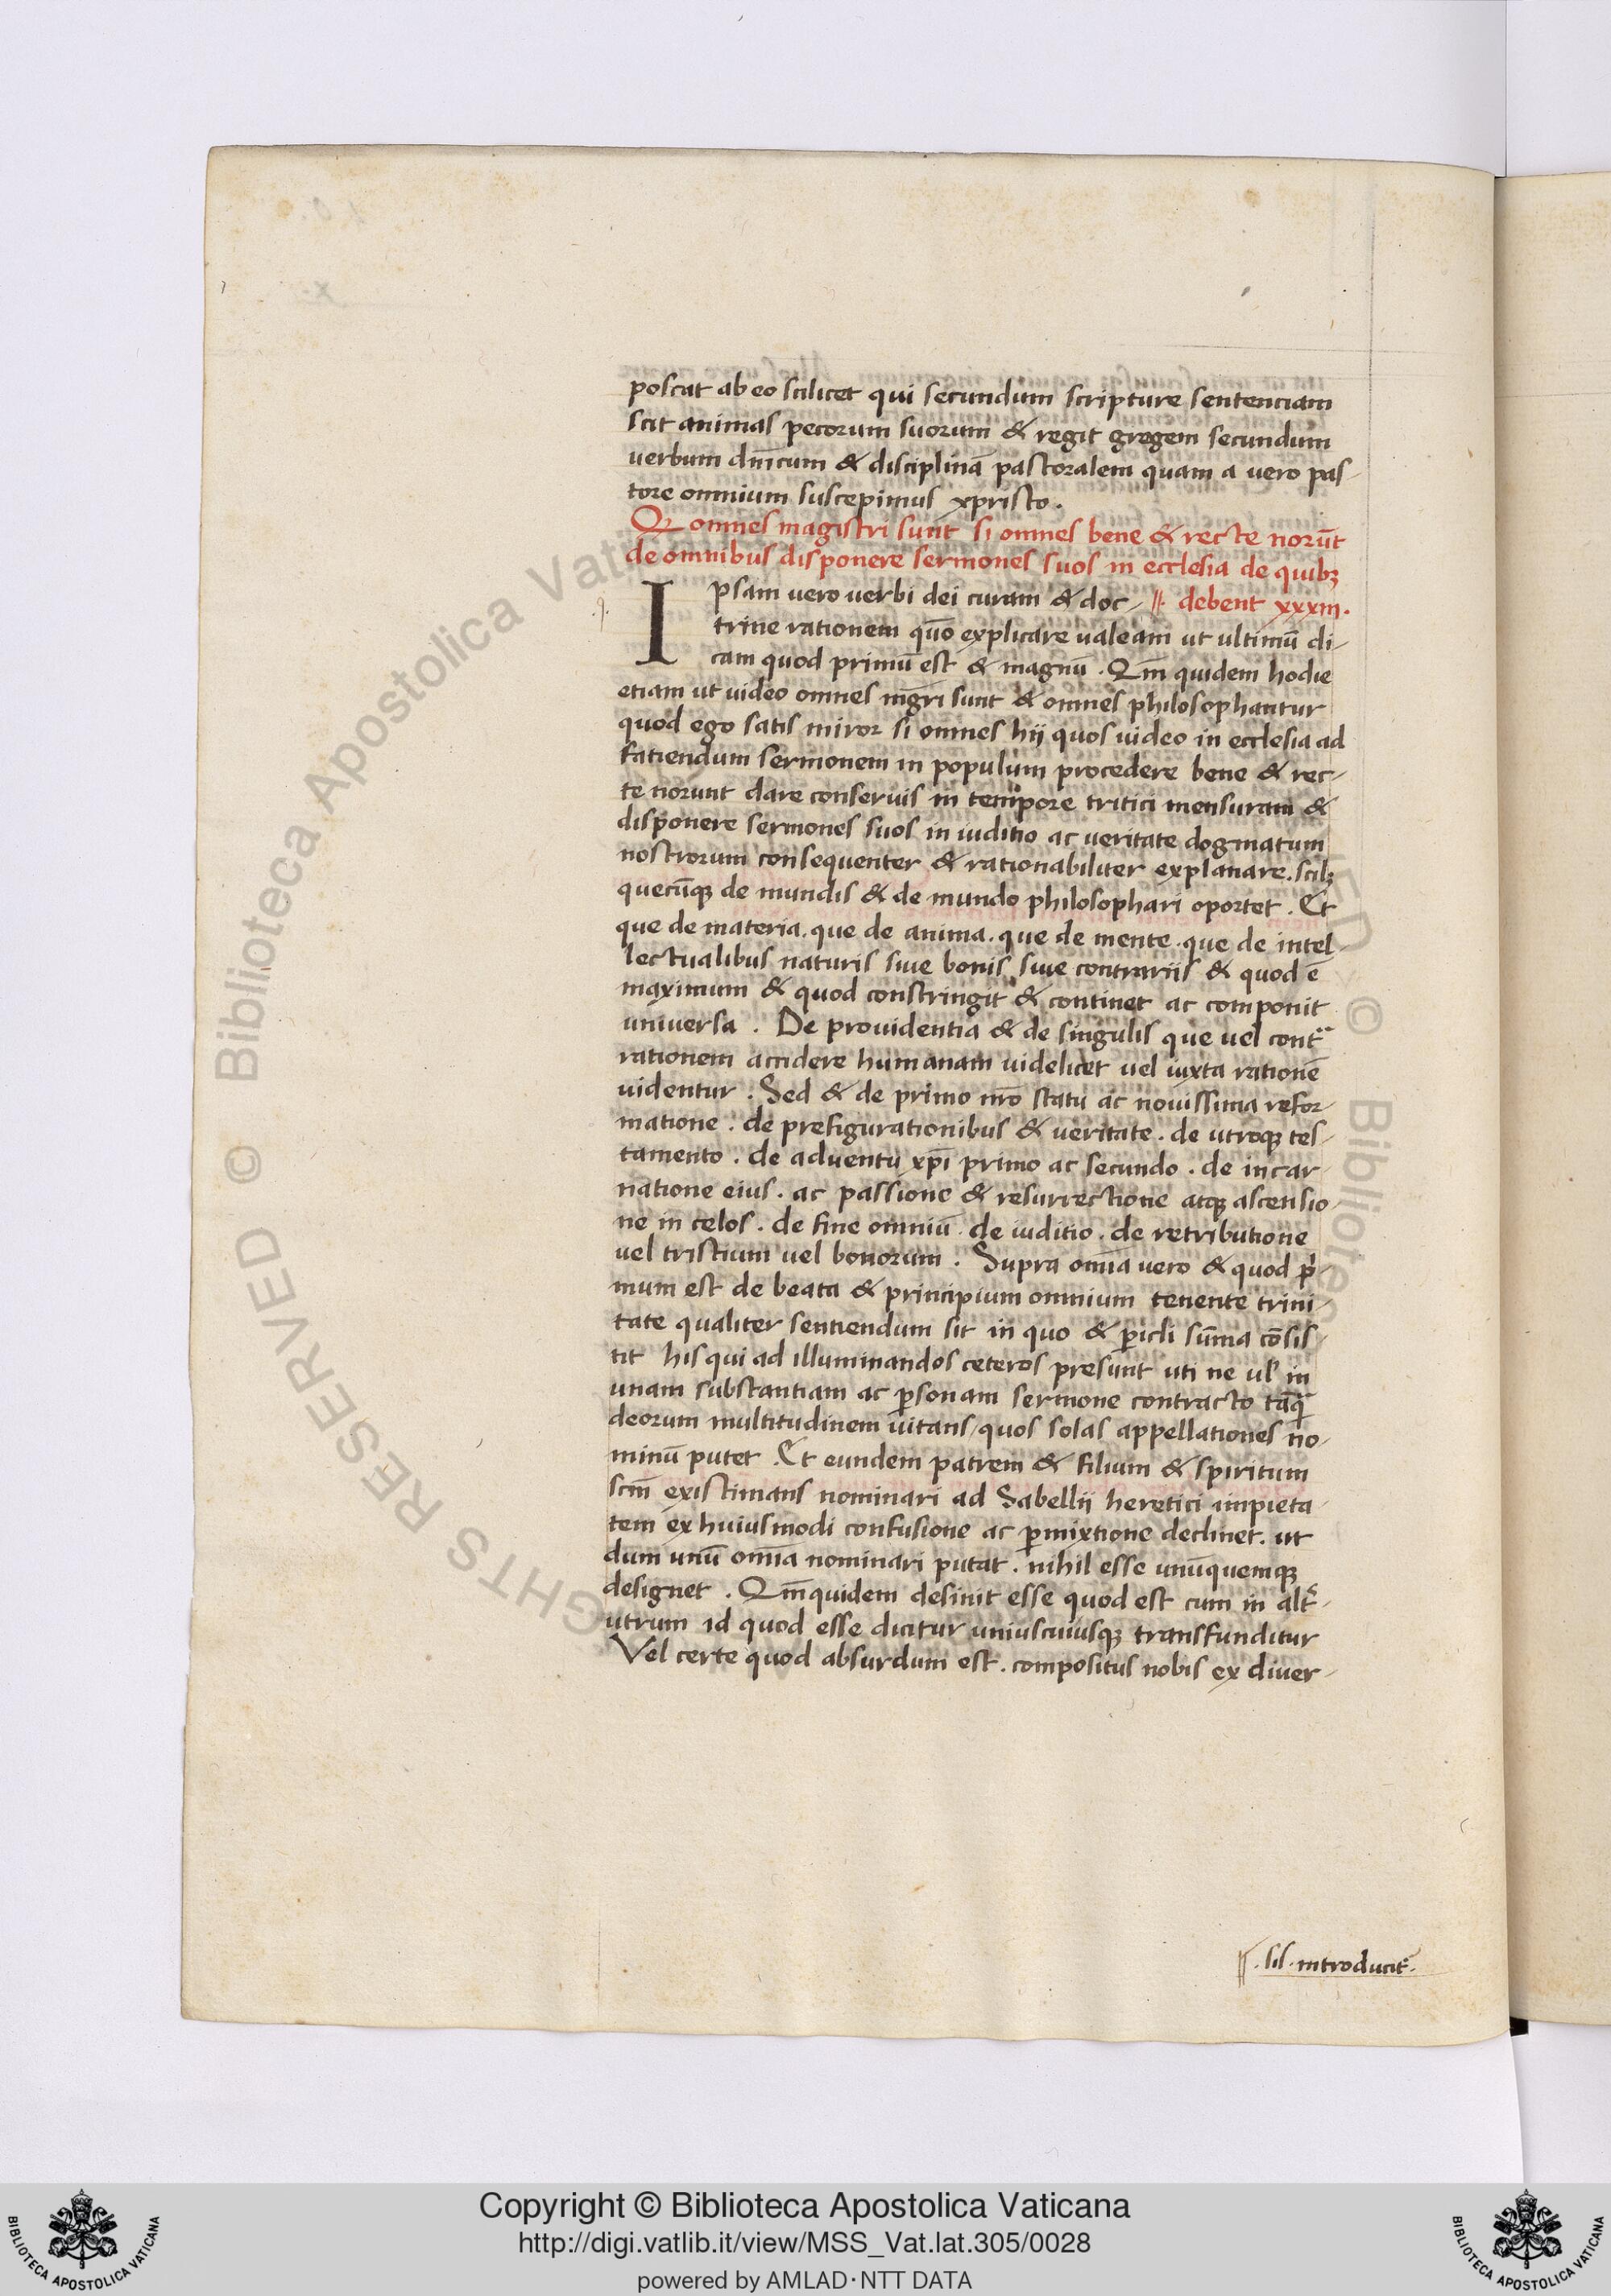 poscat ab eo scilicet qui secundum scripture sentenciam
scit animas pecorum suorum & regit gregem secundum
verbum dn̄icum & disciplinā pastoralem quam a vero pas-
tore omnium suscepimus xpristo.
Qꝫ omnes magistri sunt si omnes bene & recte norūt
de omnibus disponere sermones suos in ecclesia de quibꝫ
Ipsam vero verbi dei curam & doc- debent xxxiii.
trine rationem quō explicare ualeam ut ultimū di-
cam quod primū est & magnū. Qm̄ quidem hodie
etiam ut uideo omnes mgr̄i sunt & omnes philosophantur
quod ego satis miror si omnes hij quos uideo in ecclesia ad
fatiendum sermonem in populum procedere bene & rec-
te norunt dare conseruis in tempore tritici mensuram &
disponere sermones suos in iuditio ac veritate dogmatum
nostrorum consequenter & rationabiliter explanare. scilꝫ
quecūqꝫ de mundis & de mundo philosophari oportet. Et
que de materia. que de anima. que de mente. que de intel-
lectualibus naturis siue bonis siue contrariis & quod ē
maximum & quod constringit & continet ac componit
universa. De prouidentia & de singulis que vel cont̄
rationem accidere humanam uidelicet vel iuxta rationē
uidentur. Sed & de primo nr̄o statu ac nouissima refor-
matione. de prefigurationibus & veritate. de utroqꝫ tes-
tamento. de aduentu xp̄i primo ac secundo. de incar-
natione eius. ac passione & resurrectione atqꝫ ascensio-
ne in celos. de fine omniū. de iuditio. de retributione
vel tristium vel bonorum. Supra om̄ia vero & quod p̄-
mum est de beata & principium omnium tenente trini-
tate qualiter sentiendum sit in quo & ꝑicl̄i sūma cōsis-
tit his qui ad illuminandos ceteros presunt uti ne ul̄ in
unam substantiam ac ꝑsonam sermone contracto tāqͣ
deorum multitudinem vitans/quos solas appellationes no-
minū putet. Et eundem patrem & filium & spiritum
scm̄ existimans nominari ad Sabellij heretici impieta-
tem ex huiusmodi confusione ac ꝑmixtione declinet. ut
dum unū om̄ia nominari putat. nihil esse unūquemqꝫ
designet. Qm̄quidem desinit esse quod est cum in alt̄-
utrum id quod esse dicitur uniuscuiusqꝫ transfunditur
Vel certe quod absurdum est. compositus nobis ex diuer-
.sis. introducit̄.
Copyright © Biblioteca Apostolica Vaticana
http://digi.vatlib.it/view/MSS_Vat.lat.305/0028
powered by AMLAD·NTT DATA
BIBLIOTECA APOSTOLICA VATICANA
BIBLIOTECA APOSTOLICA VATICANA